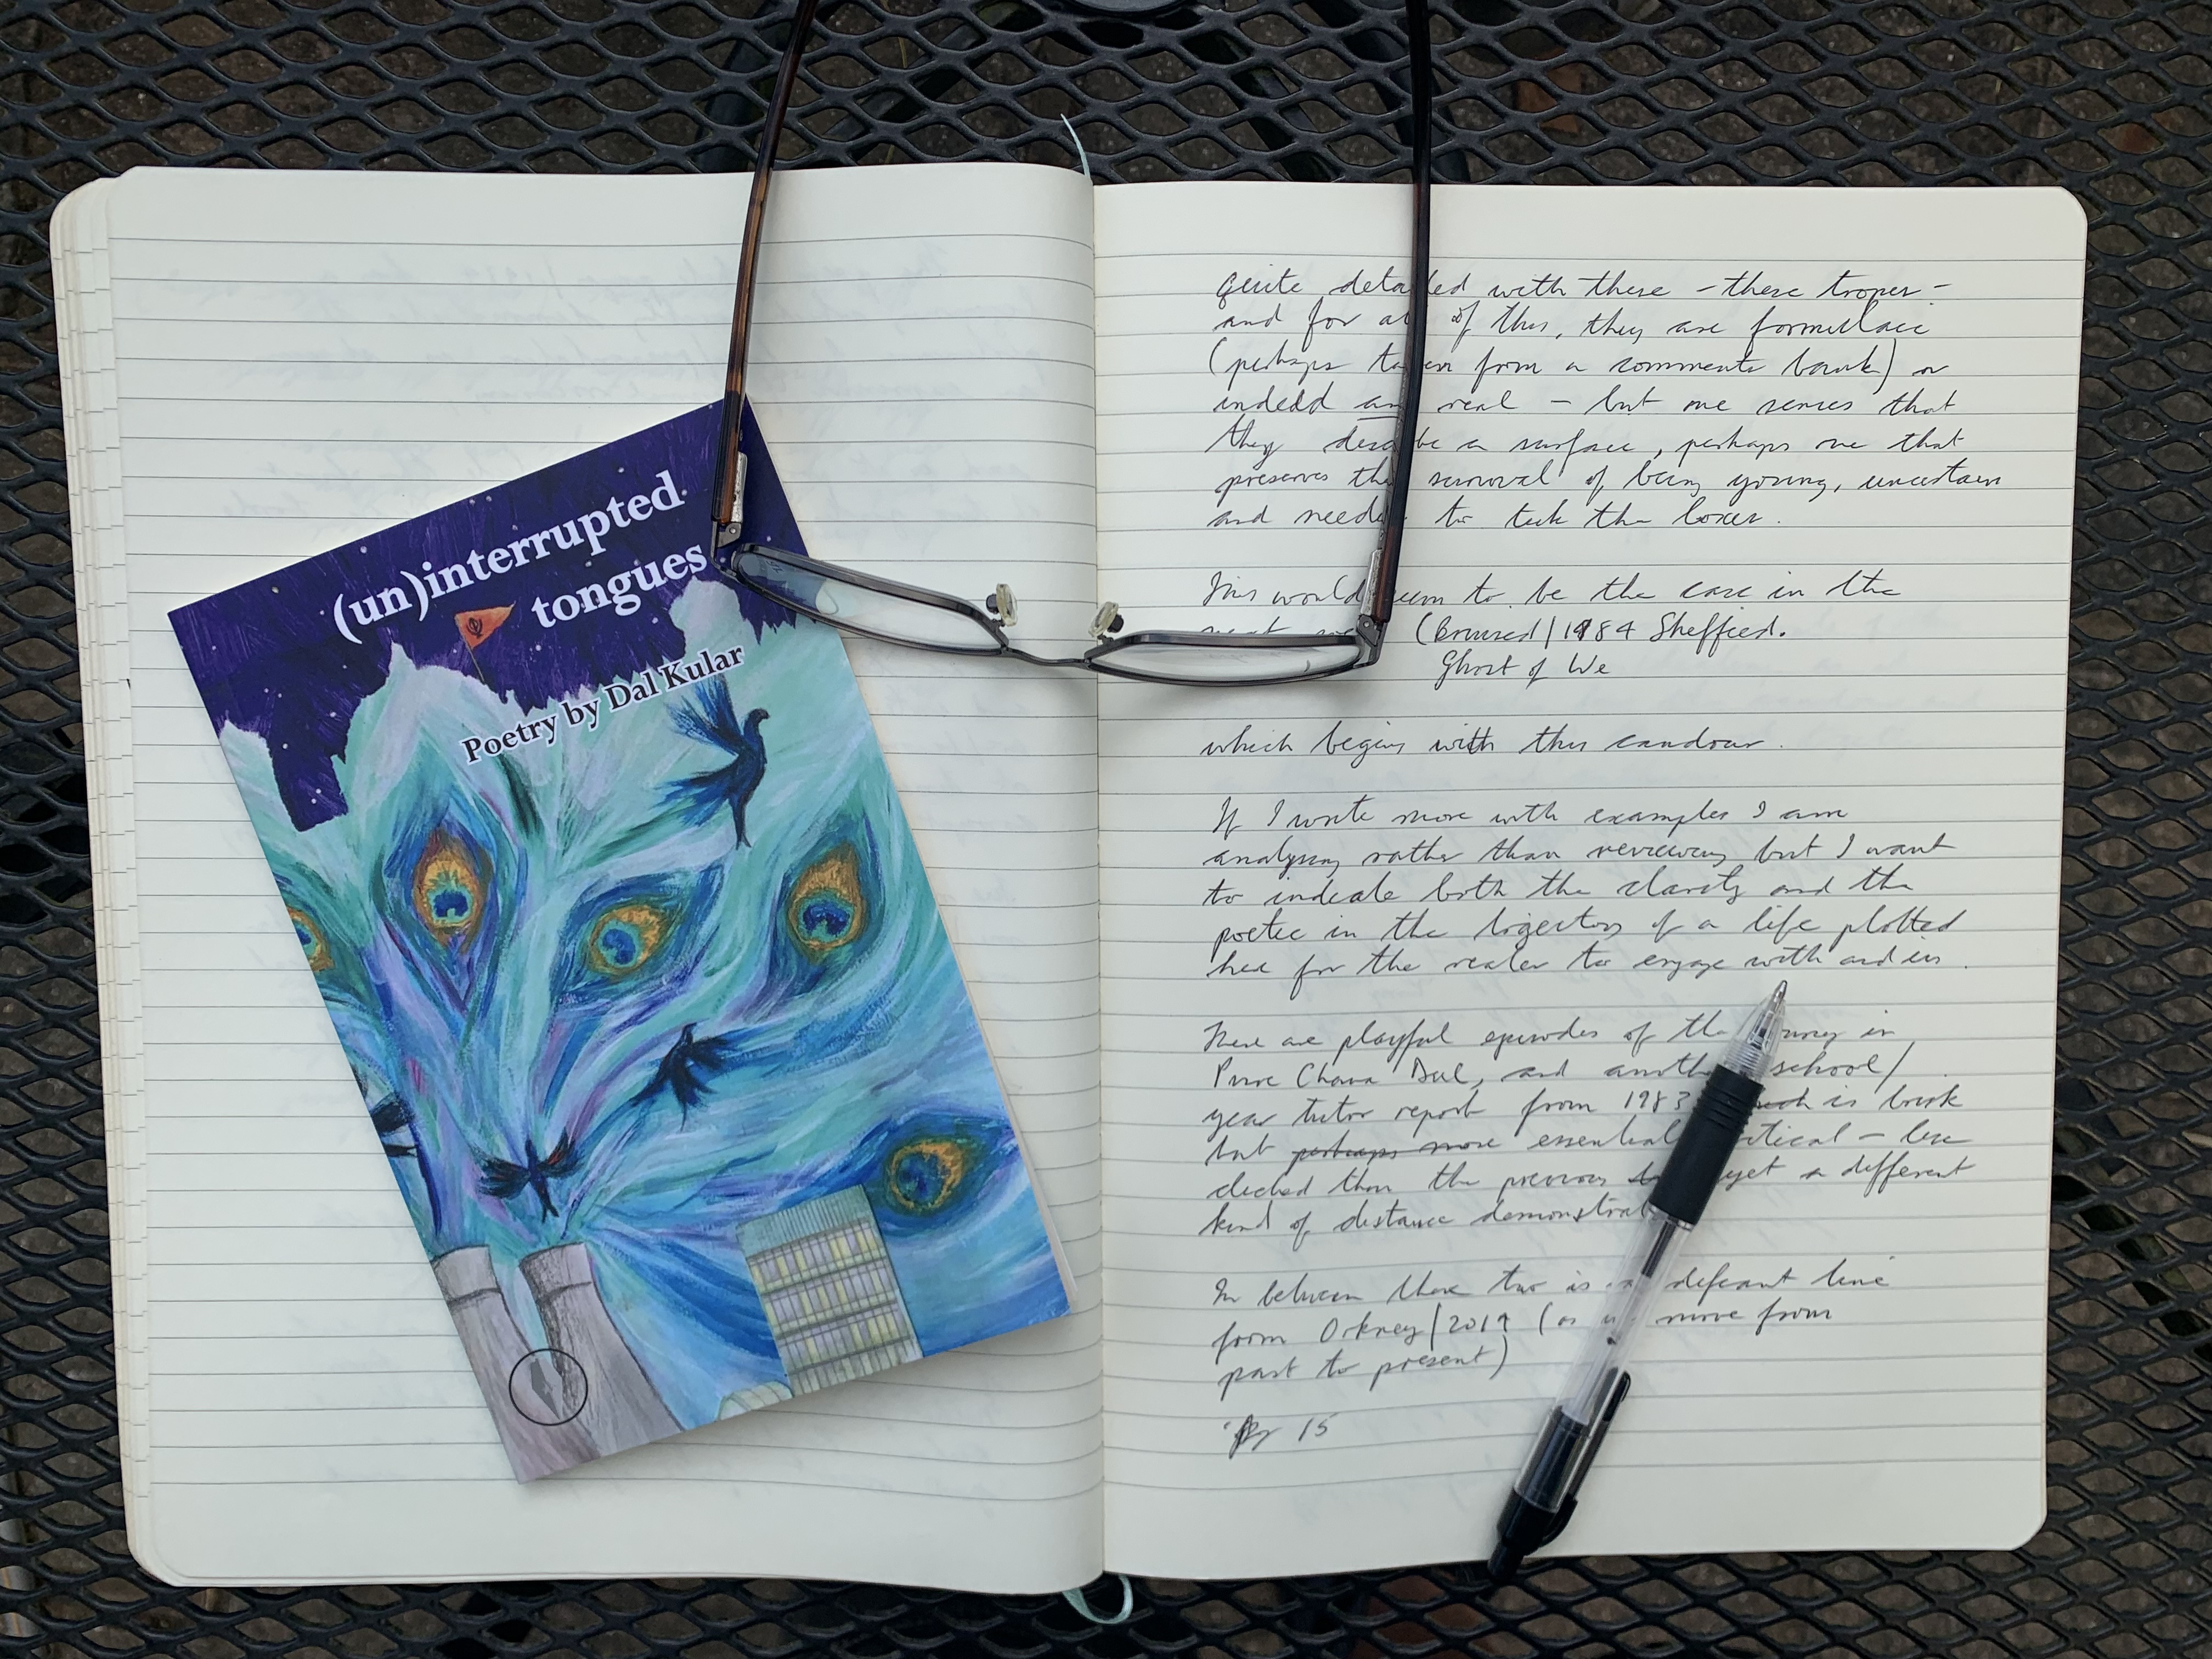 (un)interrupted
tongues
Poetry by Dal Kular
quite detailed with these - these tropes -
and for all of this, they are formulaic
(perhaps taken from a comments bank) or
indedd are real - but one senses that
they describe a surface, perhaps one that
preserves the survival of being young, uncertain
and needing to tick the boxes.
This would seem to be the case in the
(Bruised/1984 Sheffied.
Ghost of We
which begins with this candour.
If I wrote more with examples I am
analysing rather than reviewing but I want
to indicate both the clarity and the
poetic in the trajectory of a life plotted
here for the reader to engage with and in.
There are playful episodes of the journey in
Chana and another school/
year tutor report from 1983 is brisk
but perhaps more essentially critical - less
cliched than the previous yet a different
kind of distance
In between these two is a defiant line
from Orkney/2019 (as we move from
past to present)
15